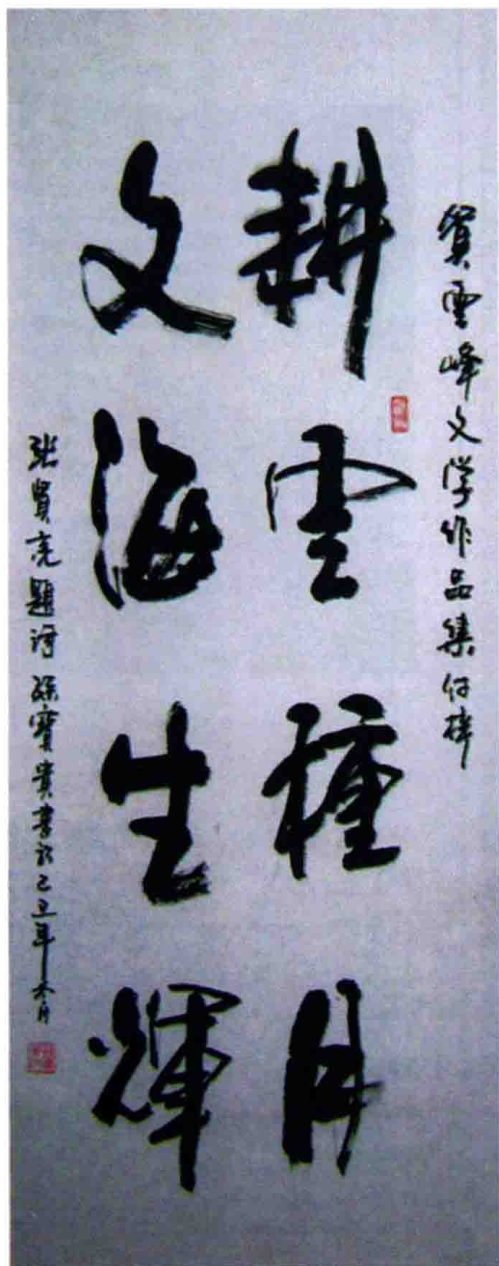 賀雲峰文学作品集付梓
耕雲種月
文海生輝
张賢亮題詞孫寶貴書於己丑年